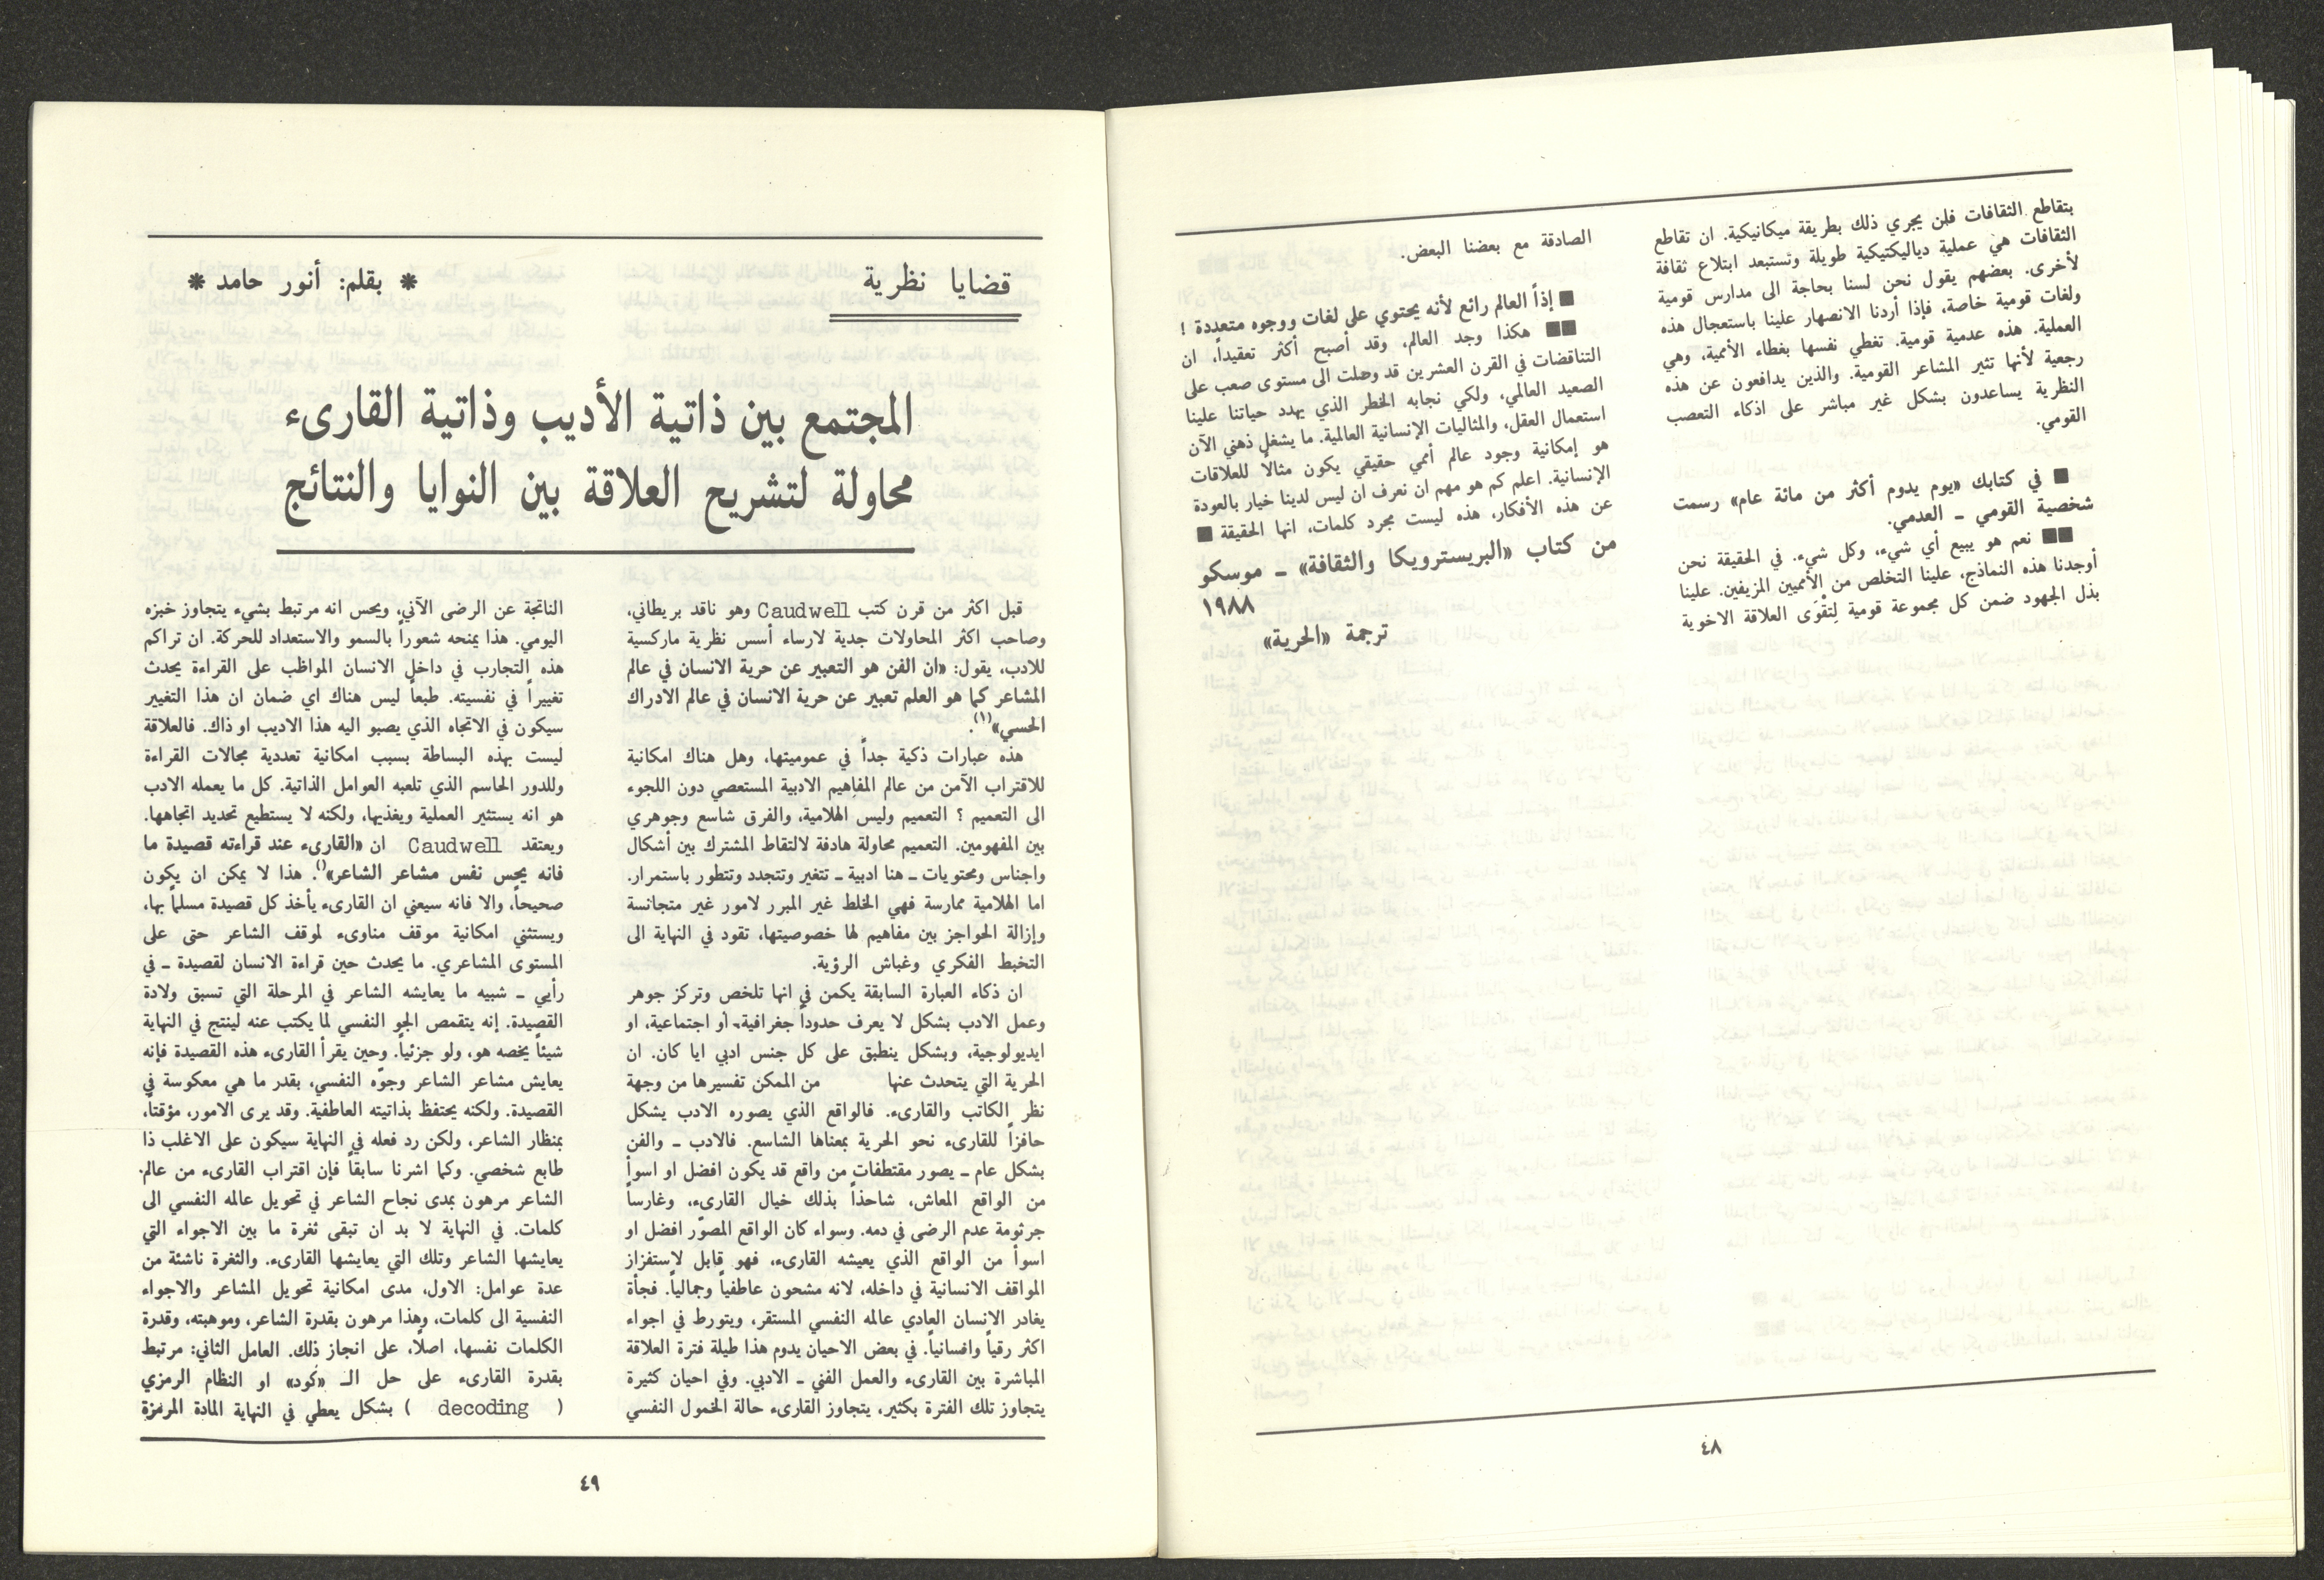 بتقاطع الثقافات فلن يجري ذلك بطريقة ميكانيكية. ان تقاطع
الثقافات هي عملية دياليكتيكية طويلة وتستبعد ابتلاع ثقافة
لأخرى. بعضهم يقول نحن لسنا بحاجة الى مدارس قومية
ولغات قومية خاصة، فإذا أردنا الانصهار علينا باستعجال هذه
العملية. هذه عدمية قومية. تغطي نفسها بغطاء الأممية، وهي
رجعية لأنها تثير المشاعر القومية. والذين يدافعون عن هذه
النظرية يساعدون بشكل غير مباشر على اذكاء التعصب
القومي.
■ في كتابك «يوم يدوم أكثر من مائة عام» رسمت
شخصية القومي ـ العدمي.
■■ نعم هو يبيع أي شيء، وكل شيء. في الحقيقة نحن
أوجدنا هذه النماذج، علينا التخلص من الأمميين المزيفين. علينا
بذل الجهود ضمن كل مجموعة قومية لِتقْوَى العلاقة الاخوية
الصادقة مع بعضنا البعض.
■ إذاً العالم رائع لأنه يحتوي على لغات ووجوه متعددة !
■■ هكذا وجد العالم، وقد أصبح أكثر تعقيداً، ان
التناقضات في القرن العشرين قد وصلت الى مستوى صعب على
الصعيد العالمي، ولكي نجابه الخطر الذي يهدد حياتنا علينا
استعمال العقل، والمثاليات الإنسانية العالمية. ما يشغل ذهني الآن
هو إمكانية وجود عالم أممي حقيقي يكون مثالاً للعلاقات
الإنسانية. اعلم كم هو مهم ان نعرف ان ليس لدينا خيار بالعودة
عن هذه الأفكار، هذه ليست مجرد كلمات، انها الحقيقة ■
من كتاب «البريسترويكا والثقافة» ـ موسكو
١٩٨٨
ترجمة «الحرية»
٤٨
قضايا نظرية
* بقلم: أنور حامد *
المجتمع بين ذاتية الأديب وذاتية القارىء
محاولة لتشريح العلاقة بين النوايا والنتائج
قبل اكثر من قرن كتب Caudwell وهو ناقد بريطاني،
وصاحب اكثر المحاولات جدية لارساء أسس نظرية ماركسية
للادب، يقول: «ان الفن هو التعبير عن حرية الانسان في عالم
المشاعر كما هو العلم تعبير عن حرية الانسان في عالم الادراك
الحسي»(١).
هذه عبارات ذكية جداً في عموميتها، وهل هناك امكانية
للاقتراب الآمن من عالم المفاهيم الادبية المستعصي دون اللجوء
الى التعميم ؟ التعميم وليس الهلامية، والفرق شاسع وجوهري
بين المفهومين. التعميم محاولة هادفة لالتقاط المشترك بين أشكال
واجناس ومحتويات ـ هنا ادبية ـ تتغير وتتجدد وتتطور باستمرار.
اما الهلامية ممارسة فهي الخلط غير المبرر لامور غير متجانسة
وإزالة الحواجز بين مفاهيم لها خصوصيتها، تقود في النهاية الى
التخبط الفكري وغباش الرؤية.
ان ذكاء العبارة السابقة يكمن في انها تلخص وتركز جوهر
وعمل الادب بشكل لا يعرف حدوداً جغرافية، أو اجتماعية، او
ايديولوجية، وبشكل ينطبق على كل جنس ادبي ايا كان. ان
الحرية التي يتحدث عنها من الممكن تفسيرها من وجهة
نظر الكاتب والقارىء. فالواقع الذي يصوره الادب يشكل
حافزاً للقارىء نحو الحرية بمعناها الشاسع. فالادب ـ والفن
بشكل عام ـ يصور مقتطفات من واقع قد يكون افضل او اسوأ
من الواقع المعاش، شاحذاً بذلك خيال القارىء، وغارساً
جرثومة عدم الرضى في دمه. وسواء كان الواقع المصوّر افضل او
اسوأ من الواقع الذي يعيشه القارىء، فهو قابل لاستفزاز
المواقف الانسانية في داخله، لانه مشحون عاطفياً وجمالياً. فجأة
يغادر الانسان العادي عالمه النفسي المستقر، ويتورط في اجواء
اكثر رقياً وافسانياً. في بعض الاحيان يدوم هذا طيلة فترة العلاقة
المباشرة بين القارىء والعمل الفني ـ الادبي. وفي احيان كثيرة
يتجاوز تلك الفترة بكثير، يتجاوز القارىء حالة الخمول النفسي
الناتجة عن الرضى الآني، ويحس انه مرتبط بشيء يتجاوز خبزه
اليومي. هذا يمنحه شعوراً بالسمو والاستعداد للحركة. ان تراكم
هذه التجارب في داخل الانسان المواظب على القراءة يحدث
تغييراً في نفسيته. طبعاً ليس هناك اي ضمان ان هذا التغيير
سيكون في الاتجاه الذي يصبو اليه هذا الاديب او ذاك. فالعلاقة
ليست بهذه البساطة بسبب امكانية تعددية مجالات القراءة
وللدور الحاسم الذي تلعبه العوامل الذاتية. كل ما يعمله الادب
هو انه يستثير العملية ويغذيها، ولكنه لا يستطيع تحديد اتجاهها.
ويعتقد Caudwell ان «القارىء عند قراءته قصيدة ما
فانه يحس نفس مشاعر الشاعر»(١). هذا لا يمكن ان يكون
صحيحاً، والا فانه سيعني ان القارىء يأخذ كل قصيدة مسلماً بها،
ويستثني امكانية موقف مناوىء لموقف الشاعر حتى على
المستوى المشاعري. ما يحدث حين قراءة الانسان لقصيدة ـ في
رأيي ـ شبيه ما يعايشه الشاعر في المرحلة التي تسبق ولادة
القصيدة. إنه يتقمص الجو النفسي لما يكتب عنه لينتج في النهاية
شيئاً يخصه هو، ولو جزئياً. وحين يقرأ القارىء هذه القصيدة فإنه
يعايش مشاعر الشاعر وجوّه النفسي، بقدر ما هي معكوسة في
القصيدة. ولكنه يحتفظ بذاتيته العاطفية. وقد يرى الامور، مؤقتاً،
بمنظار الشاعر، ولكن رد فعله في النهاية سيكون على الاغلب ذا
طابع شخصي. وكما اشرنا سابقاً فإن اقتراب القارىء من عالم
الشاعر مرهون بمدى نجاح الشاعر في تحويل عالمه النفسي الى
كلمات. في النهاية لا بد ان تبقى ثغرة ما بين الاجواء التي
يعايشها الشاعر وتلك التي يعايشها القارىء. والثغرة ناشئة من
عدة عوامل: الاول، مدى امكانية تحويل المشاعر والاجواء
النفسية الى كلمات، وهذا مرهون بقدرة الشاعر، وموهبته، وقدرة
الكلمات نفسها، اصلاً، على انجاز ذلك. العامل الثاني: مرتبط
بقدرة القارىء على حل الـ «كود» او النظام الرمزي
( decoding ) بشكل يعطي في النهاية المادة المرمزة
٤٩